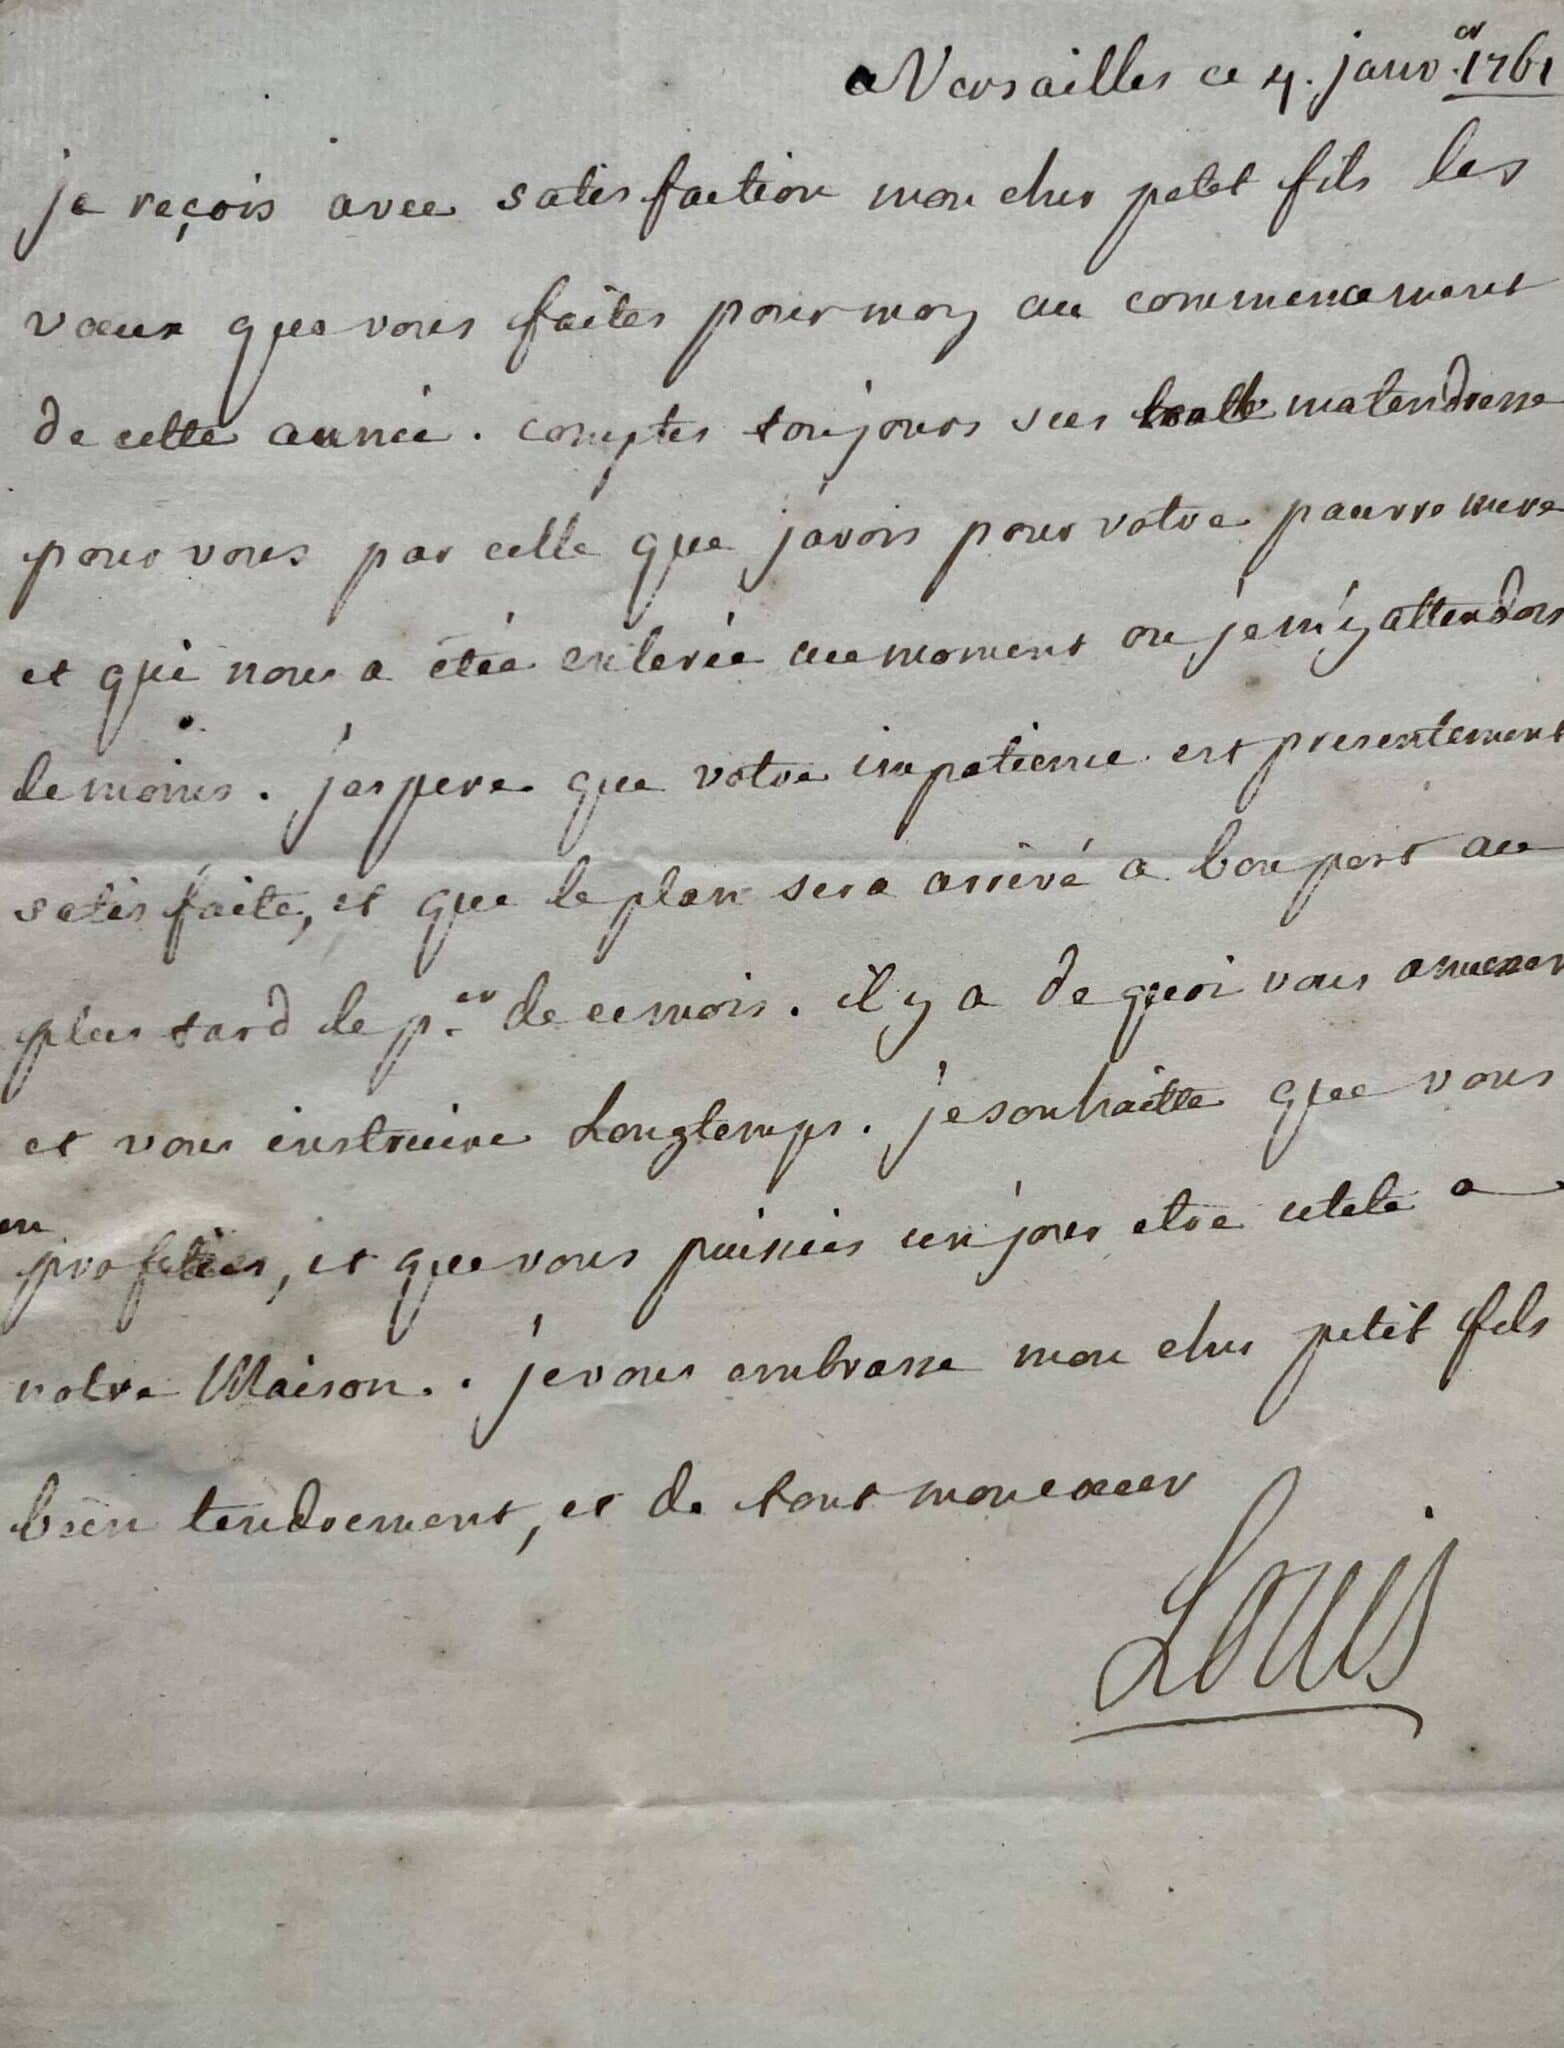 a Versailles ce 4. janv.er 1761
je reçois avec satisfaction mon cher petit fils les
vœux que vous faites pour moy au commencement
de cette année. comptes toujours sur toutte ma tendresse
pour vous par celle que j'avois pour votre pauvre mere
et qui nous a étée enlevée au moment ou je m'y attendois
le moins. j'espere que votre impatience est presentement
satisfaite, et que le plan sera arrivé a bon port au
plus tard le p.er de ce mois. il y a de quoi vous amuser
et vous instruire Longtemps. je souhaitte que vous
en
profities, et que vous puissies un jour etre utile a
votre Maison.. je vous embrasse mon cher petit fils
bien tendrement, et de tout mon cœur
Louis